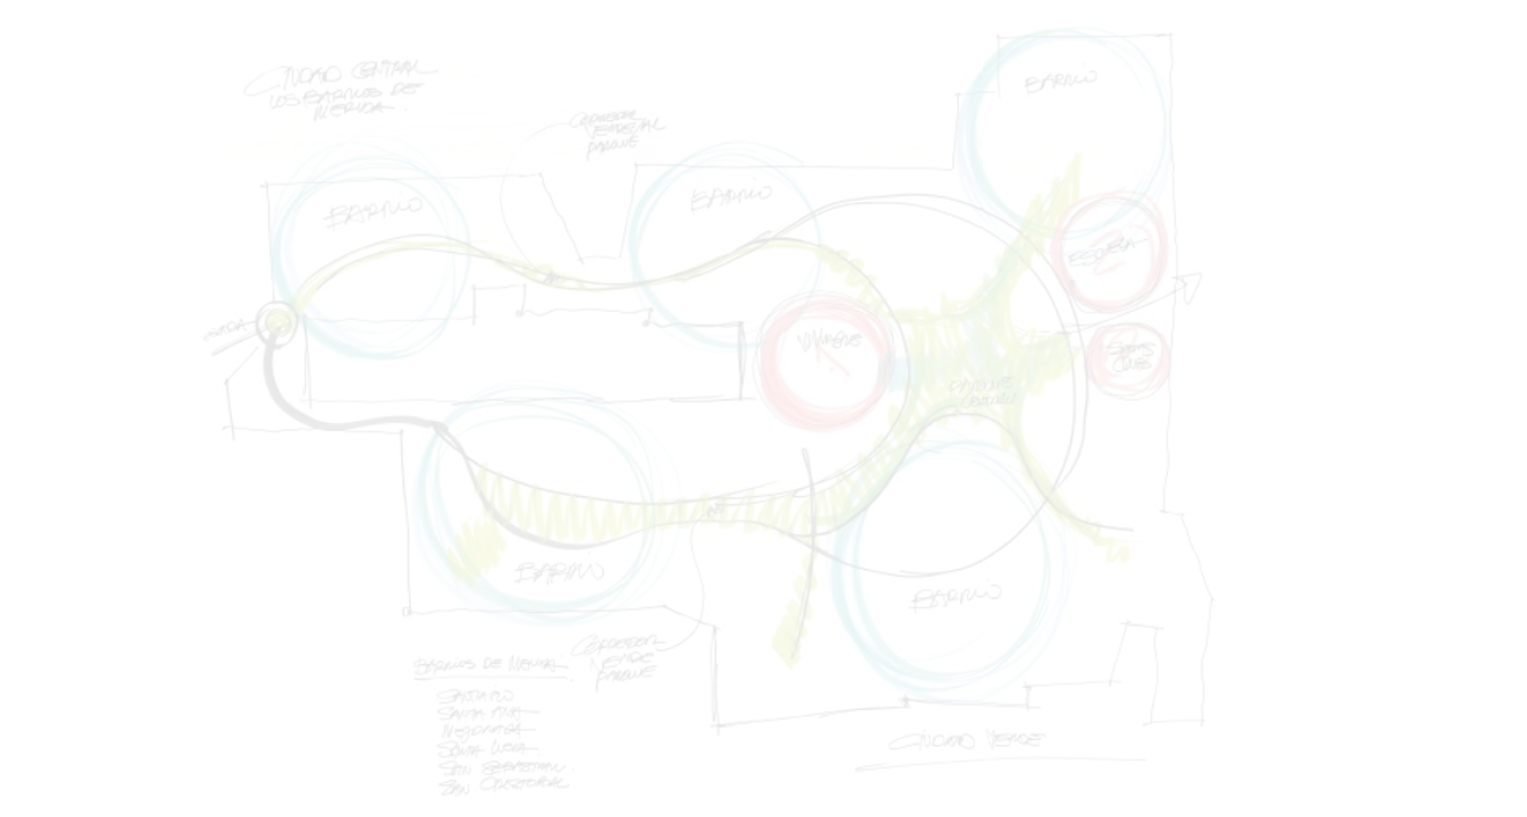 CIUDAD CENTRAL
LOS BARRIOS DE
MERIDA.
BARRIO
CORREDOR
VERDE/AL
PARQUE
BARRIO
BARRIO
ESCUELA
2
VILLAGE
1
PARQUE
URBANO
BARRIO
BARRIO
CORREDOR
VERDE
PARQUE
BARRIOS DE MERIDA.
SANTIAGO
SANTA ANA
MEJORADA
SANTA LUCIA
SAN SEBASTIAN.
SAN CRISTOBAL
CIUDAD VERDE